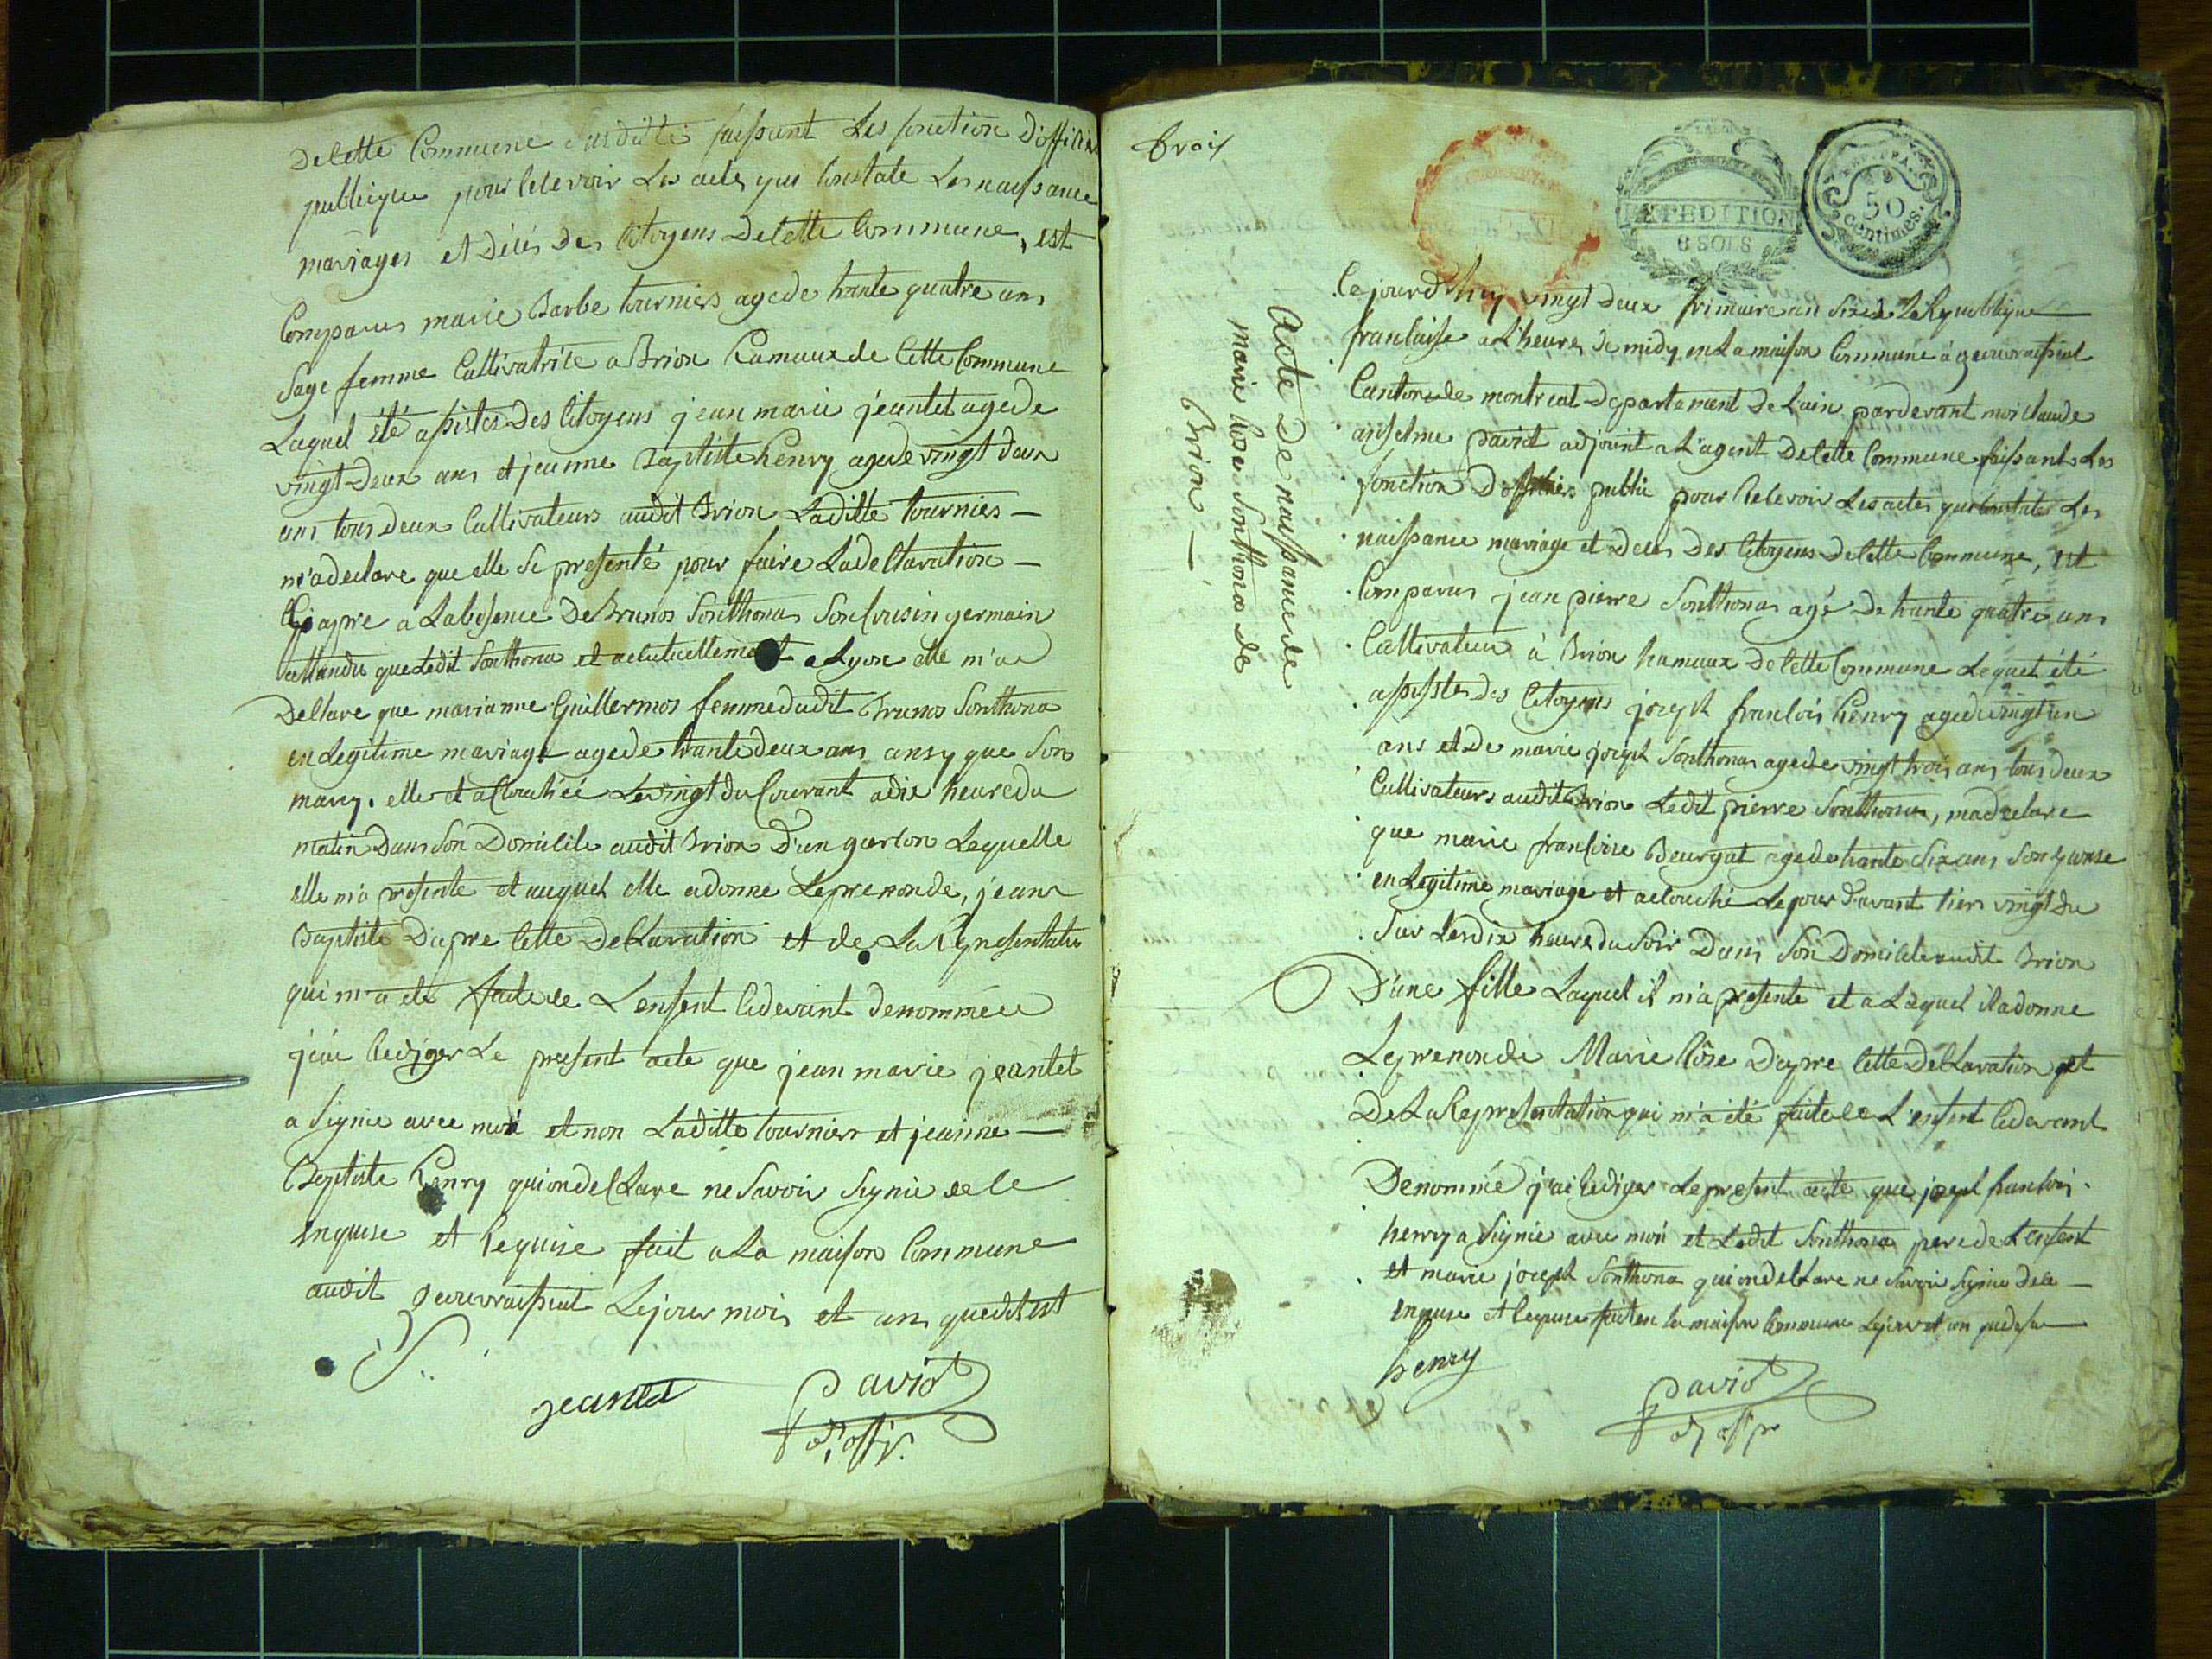 De Cette Commune susditte faissant Les fonction D'officier
publique pour Recevoir Les actes qui Constate Les naissance
mariages et Décès Des Citoyens De Cette Commune, est
Comparus marie Barbe tourniers agede trante quatre ans
Sage femme Cultivatrice a Brion hamaux de Cette Commune
Laquel été assistes Des Citoyens jean marie jeantet agede
vingt Deux ans et jeanne Baptiste henry agede vingt Deux
ans tous deux Cultivateurs audit Brion Laditte tournies —
m'a declare que elle Se presenté pour faire La declaration —
Ci apre a L'absence De Brunos Sonthonas Son Cousin germain
attandu que Ledit Sonthona et actutuellement a Lyon elle m'a
Declare que marianne Guillermos femme dudit Brunos Sonthona
en Legitime mariage agede trante deux ans ansy que Son
mary. elle et accouchée Le vingt du Courant a dix heure du
matin Dans Son Domicile audit Brion D'un garson Lequelle
elle m'a presente et auquel elle a donne Le prenom de, jean
Baptiste D'apre Cette Declaration et de La Representation
qui m'a ete faite de L'enfent Cidevant denommée
j'ai Rediger Le present acte que jean marie jeantet
a Signie avec moi et non Laditte tournier et jeanne —
Baptiste henry qui on declare ne Savoir Signie de Ce
enquise et Requise fait a La maison Commune
audit geovraissiat Le jour mois et ans quedit est
jeantet
David
adj offi.
trois
EXPEDITION
6 SOLS
50
Centimes.
Acte De naissance de
marie Rose Sonthonax de
Brion —
Cejourd'huy vingt deux frimaire an Six de La Republique
francaisse a L'heures de midy en La maison Commune à geovraissiat
Canton de montreal Departement De Lain pardevant moi Claude
anselme David adjoint a L'agent De Cette Commune faissants Les
fonction D'officiers public pour Recevoir Les actes qui Constate Les
naissance mariage et deces Des Citoyens De Cette Commune, est
Comparus jean pierre Sonthonas agé De trante quatre ans
Cultivateur à Brion hamaux De Cette Commune Lequel été
assistes des Citoyens joseph francois henry agede vingt un
ans et De marie joseph Sonthonas agede vingt trois ans tous deux
Cultivateurs audit Brion Ledit pierre Sonthonas, ma declare
que marie francoise Beurgat agede trante Six ans Son epouse
en Legitime mariage et accouché Le jour D'avant hier vingt du
Sur Les dix heure du Soir Dans Son Domicile audit Brion
D'une fille Laquel il m'a presente et a Laquel il a donne
Le prenom de Marie Rôse D'apre Cette Declaration et
De La Representation qui m'a été faite de L'enfent Cidevant
Denommé j'ai Rediger Le present acte que joseph francois
henry a Signie avec moi et Ledit Sonthona pere de L'enfent
et marie joseph Sonthona qui on declare ne Savoir Signie de Ce —
enquise et Requise fait en La maison Commune Le jour et an que dessu
henry
David
adj offi